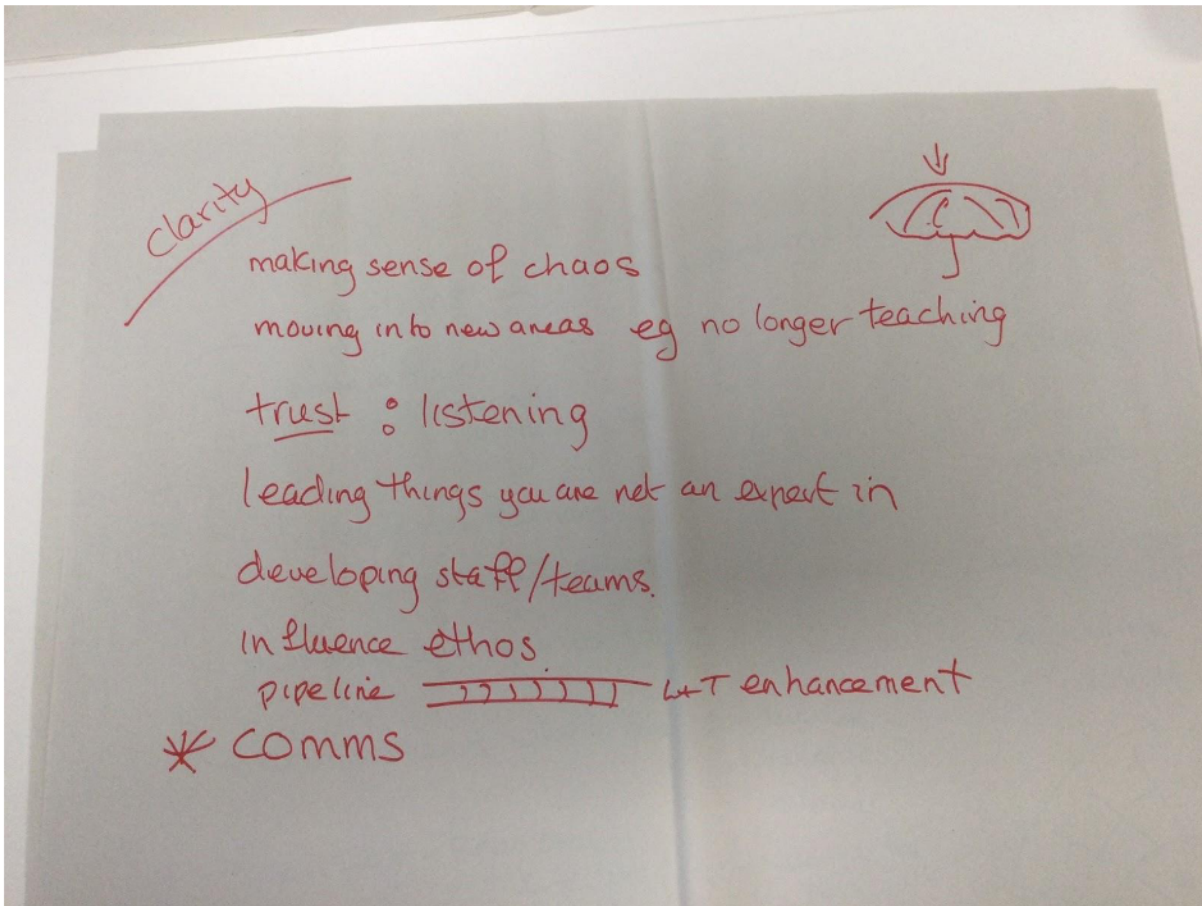 clarity
making sense of chaos
moving into new areas eg no longer teaching
trust : listening
leading things you are not an expert in
developing staff/teams.
influence ethos.
pipeline L+T enhancement
* comms